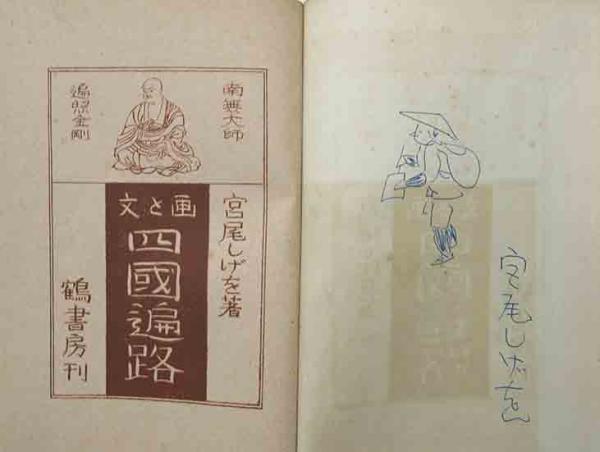 南無大師
遍照金剛
宮尾しげを著
画と文
四國遍路
鶴書房刊
宮尾しげを